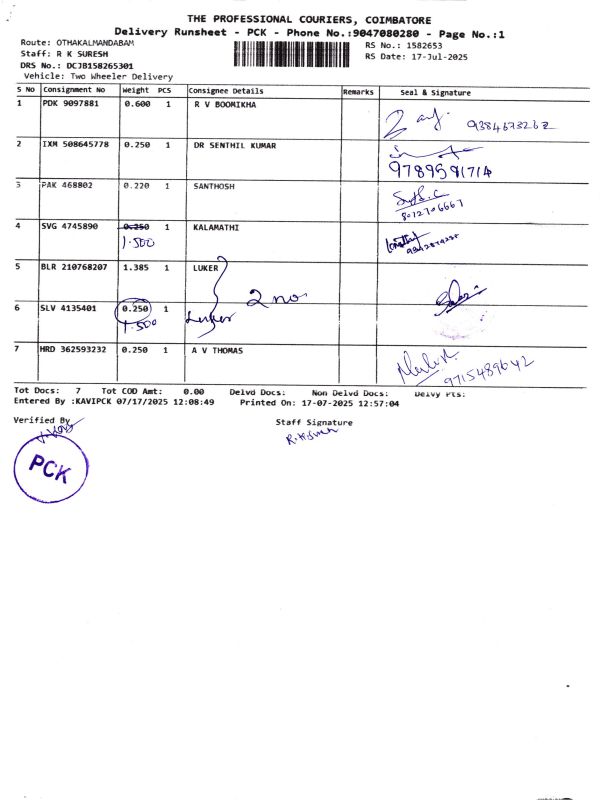 THE PROFESSIONAL COURIERS, COIMBATORE
Delivery Runsheet - PCK - Phone No.:9047080280 - Page No.:1
Route: OTHAKALMANDABAM RS No.: 1582653
Staff: R K SURESH RS Date: 17-Jul-2025
DRS No.: DCJB158265301
Vehicle: Two Wheeler Delivery
S No Consignment No Weight PCS Consignee Details Remarks Seal & Signature
1 PDK 9097881 0.600 1 R V BOOMIKHA
9384673262
2 IXM 508645778 0.250 1 DR SENTHIL KUMAR
9789591714
3 PAK 468802 0.220 1 SANTHOSH
8012706667
4 SVG 4745890 0.250 1 KALAMATHI
1.500
5 BLR 210768207 1.385 1 LUKER
2 no
6 SLV 4135401 0.250 1 Luker
1.500
7 HRD 362593232 0.250 1 A V THOMAS
9715489642
Tot Docs: 7 Tot COD Amt: 0.00 Delvd Docs: Non Delvd Docs: Delvy Pts:
Entered By :KAVIPCK 07/17/2025 12:08:49 Printed On: 17-07-2025 12:57:04
Verified By Staff Signature
PCK